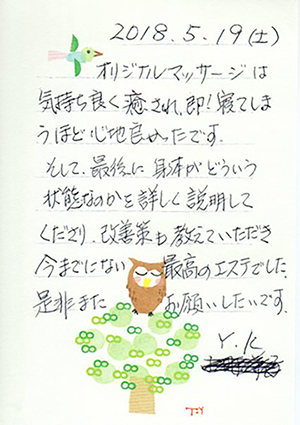 2018.5.19(土)
オリジナルマッサージは
気持ち良く癒され、即!寝てしま
うほど心地良かったです。
そして、最後に身体がどういう
状態なのかを詳しく説明して
くださり、改善策も教えていただき
今までにない 最高のエステでした。
是非また お願いしたいです。
Y.K
T.Y